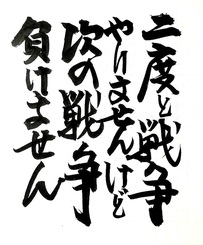 二度と戦争
やりませんけど
次の戦争
負けません